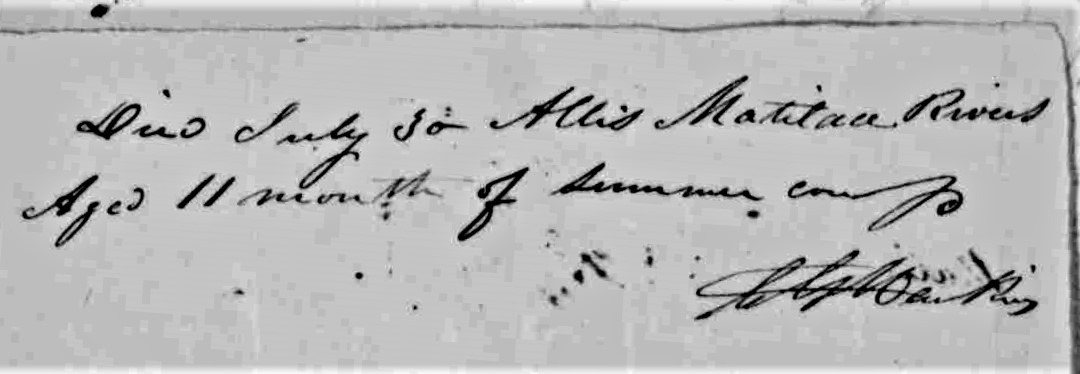 Died July 30 Allis Matilda Rivers
Aged 11 month of summer comp